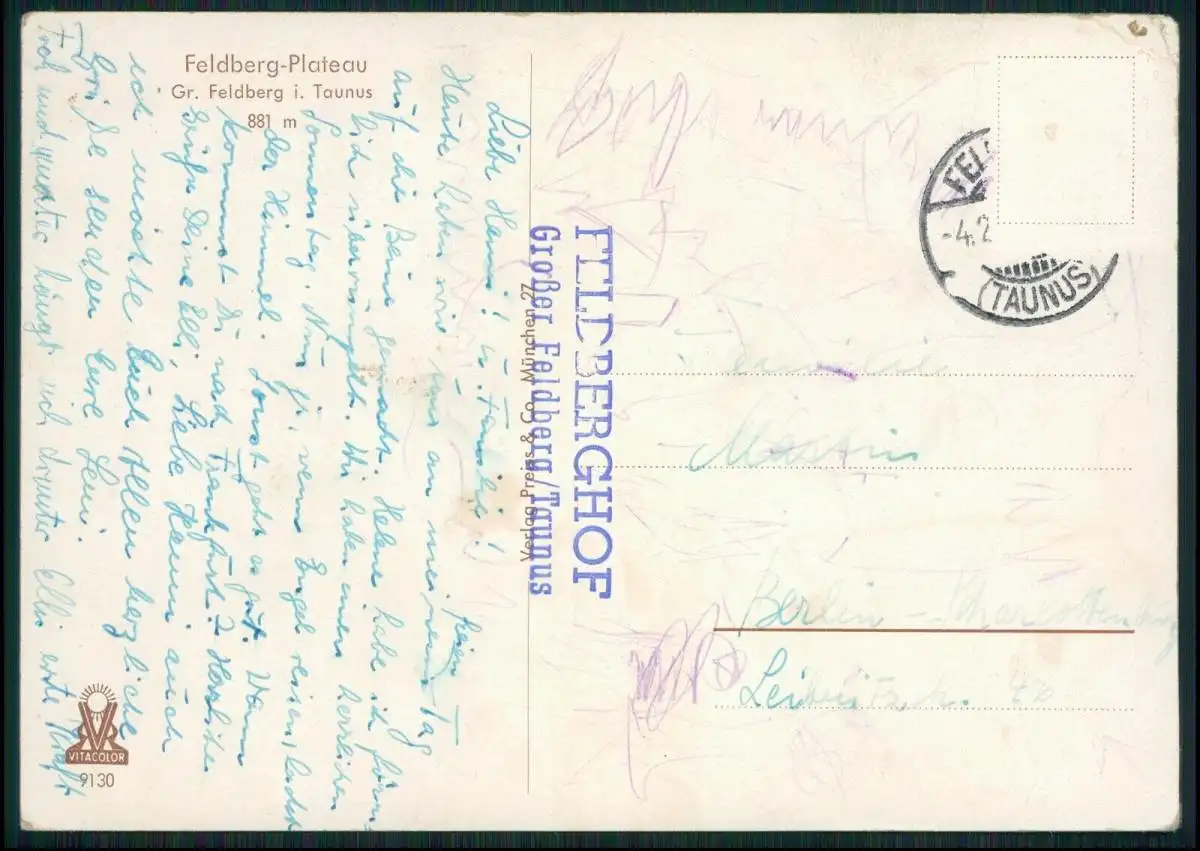 Feldberg-Plateau
Gr. Feldberg i. Taunus
881 m
Liebe Hanni! u. Familie!
Heute haben wir uns an meinem freien Tag
auf die Beine gemacht. Helene habe ich förm-
lich überrumpelt. Wir haben einen herrlichen
Sonnentag. Nun ja, wenn Engel reisen, lacht
der Himmel. Sonst geht es gut. Wann
kommst Du nach Frankfurt? Herzliche
Grüße Deine Elli, Liebe Hanni auch
ich möchte Euch Allen herzliche
Grüße senden Eure Leni.
Froh und munter hängt sich drunter Ellis erste Kraft
VITACOLOR
9130
Verlag Preiss & Co. München 27
FELDBERGHOF
Großer Feldberg/Taunus
FEL
-4.2
(TAUNUS)
Familie
Berlin - Charlottenburg
Leibnizstr.